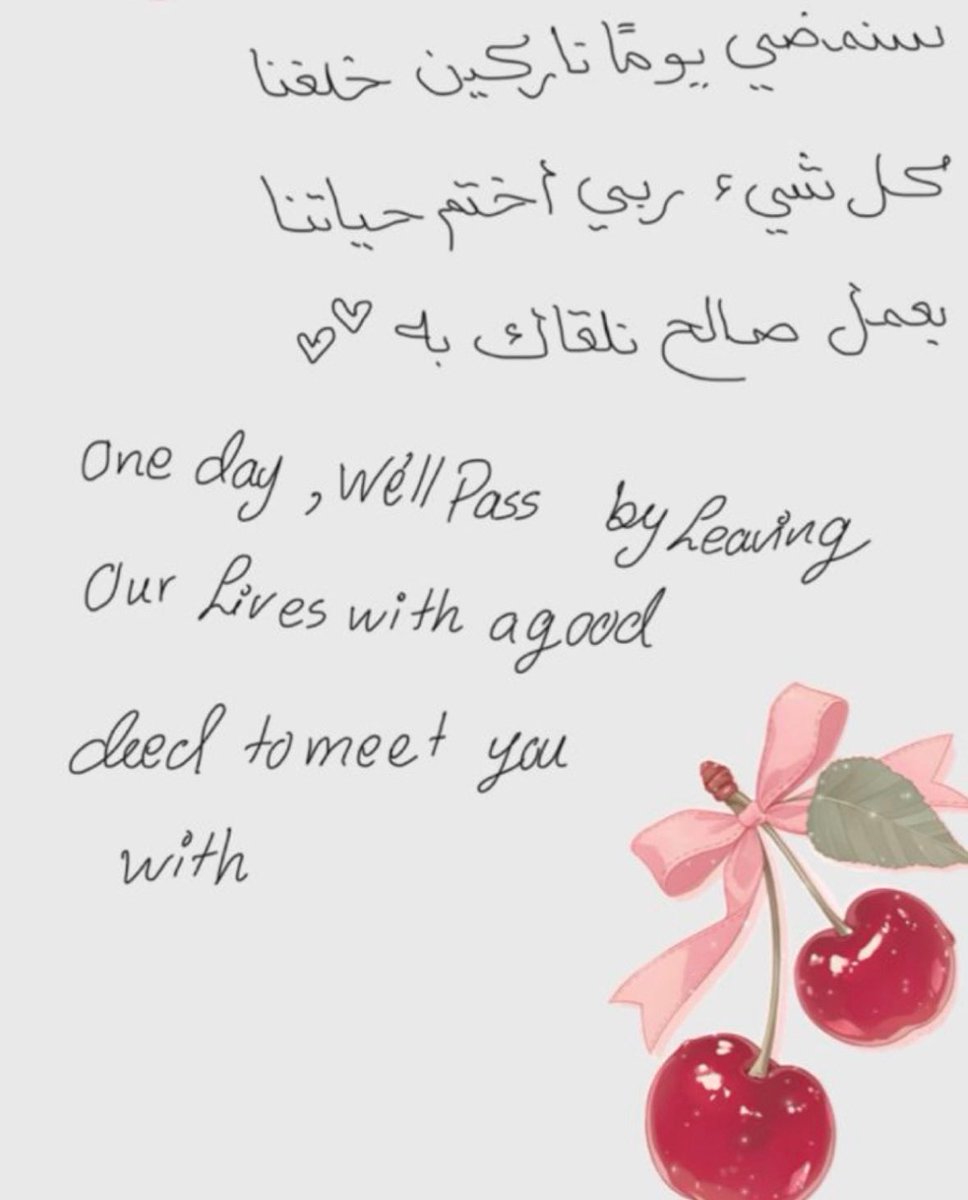 سنمضي يومًا تاركين خلفنا
كل شيء ربي أختم حياتنا
بعمل صالح نلقاك به
One day , We'll Pass by Leaving
Our Lives with a good
deed to meet you
with